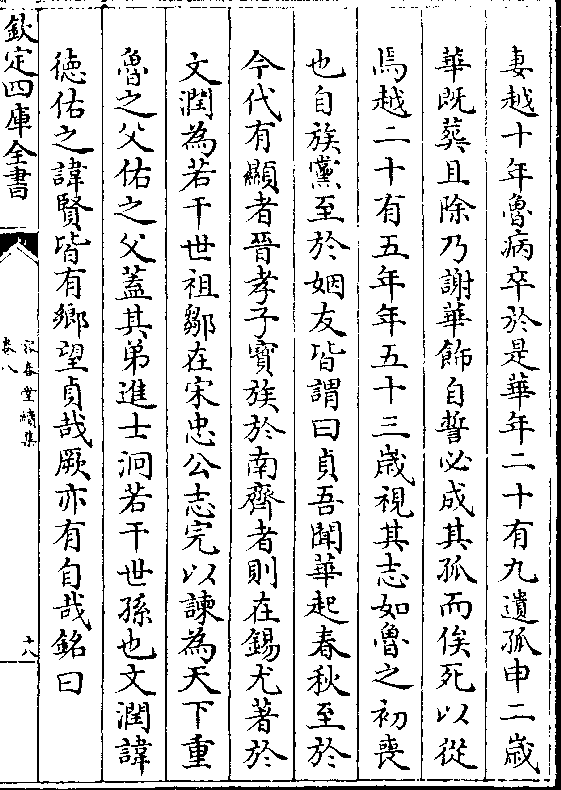 妻越十年魯病卒於是華年二十有九遺孤申二歲
華既葬且除乃謝華飾自誓必成其孤而俟死以從
焉越二十有五年年五十三歲視其志如魯之初喪
也自族黨至於姻友皆謂曰貞吾聞華起春秋至於
今代有顯者晉孝子寶族於南齊者則在錫尤著於
文潤為若干世祖鄒在宋忠公志完以諫為天下重
魯之父佑之父蓋其弟進士洞若干世孫也文潤諱
徳佑之諱賢皆有鄉望貞哉厥亦有自哉銘曰
欽定四庫全書
容春堂續集
卷八
十八